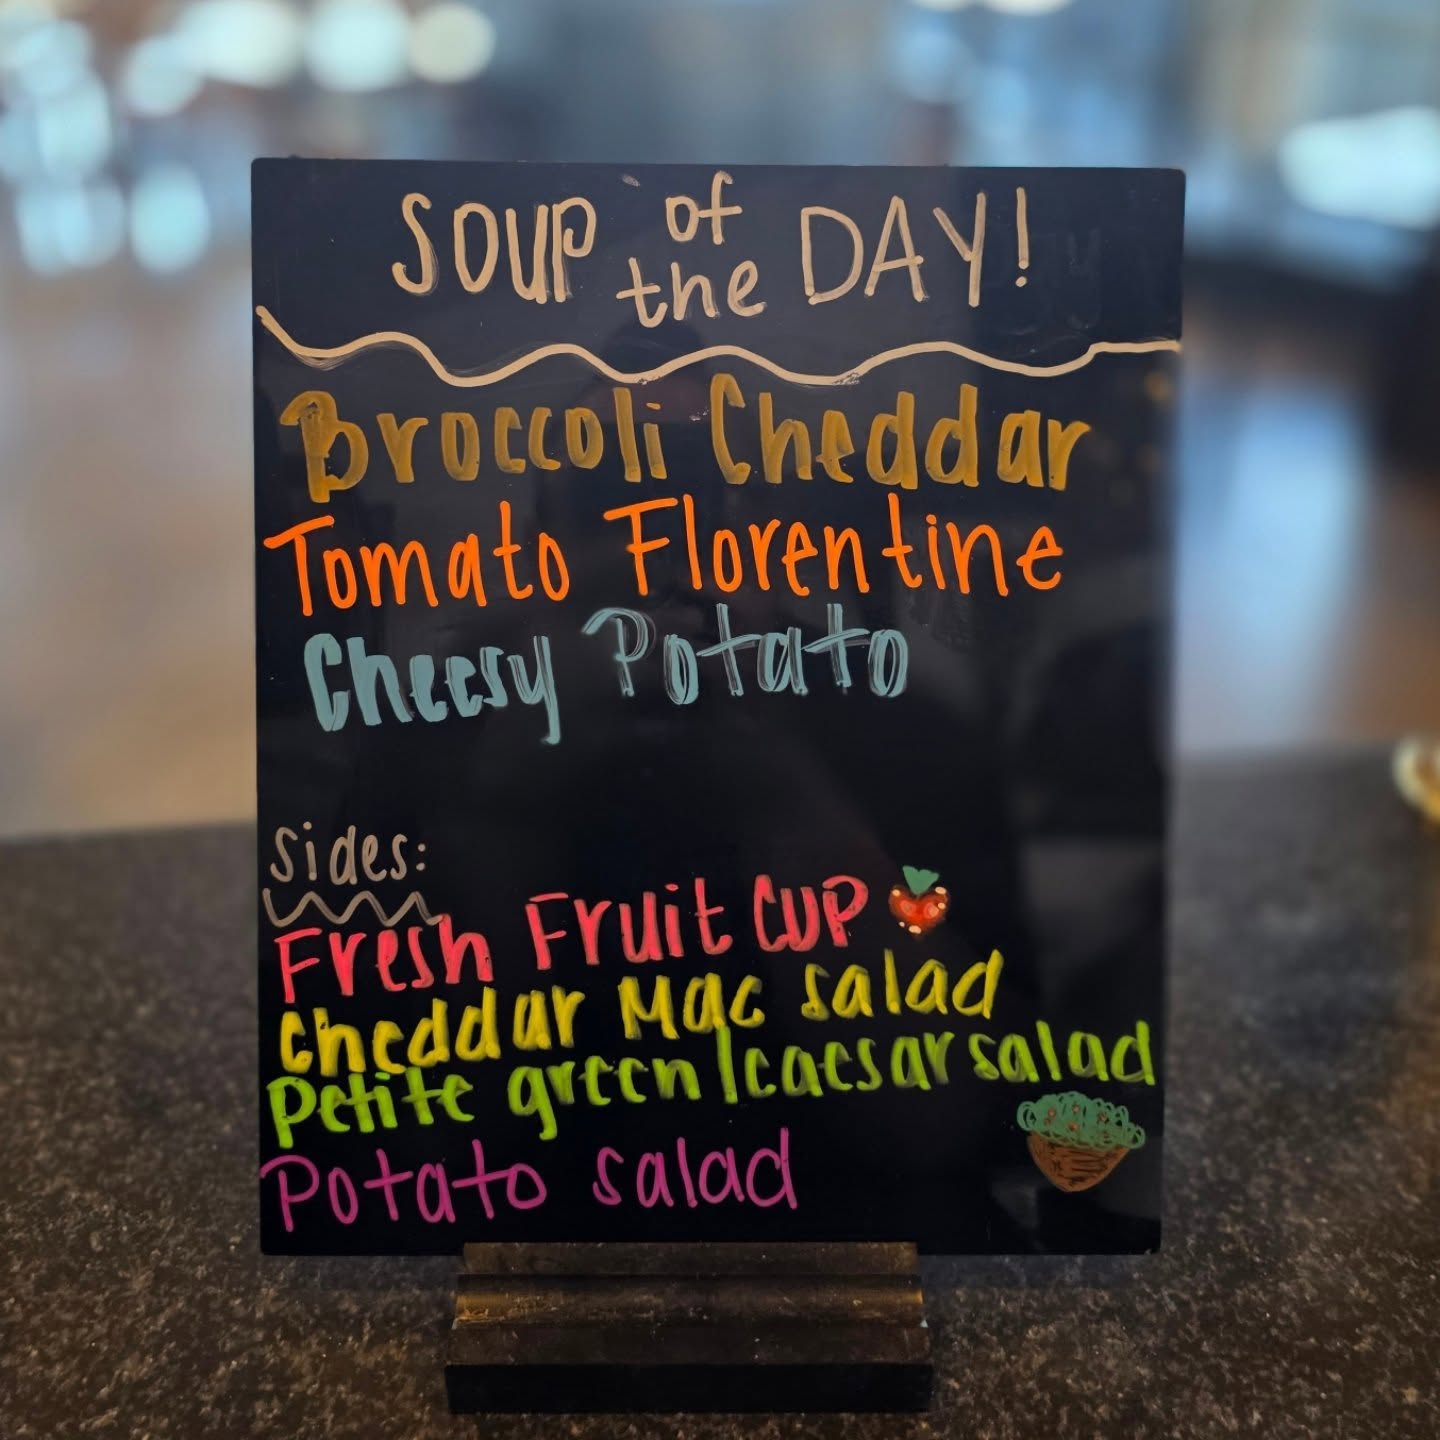 SOUP of the DAY!
Broccoli Cheddar
Tomato Florentine
Cheesy Potato
Sides:
Fresh Fruit CUP
Cheddar Mac salad
Petite green/caesar salad
Potato salad